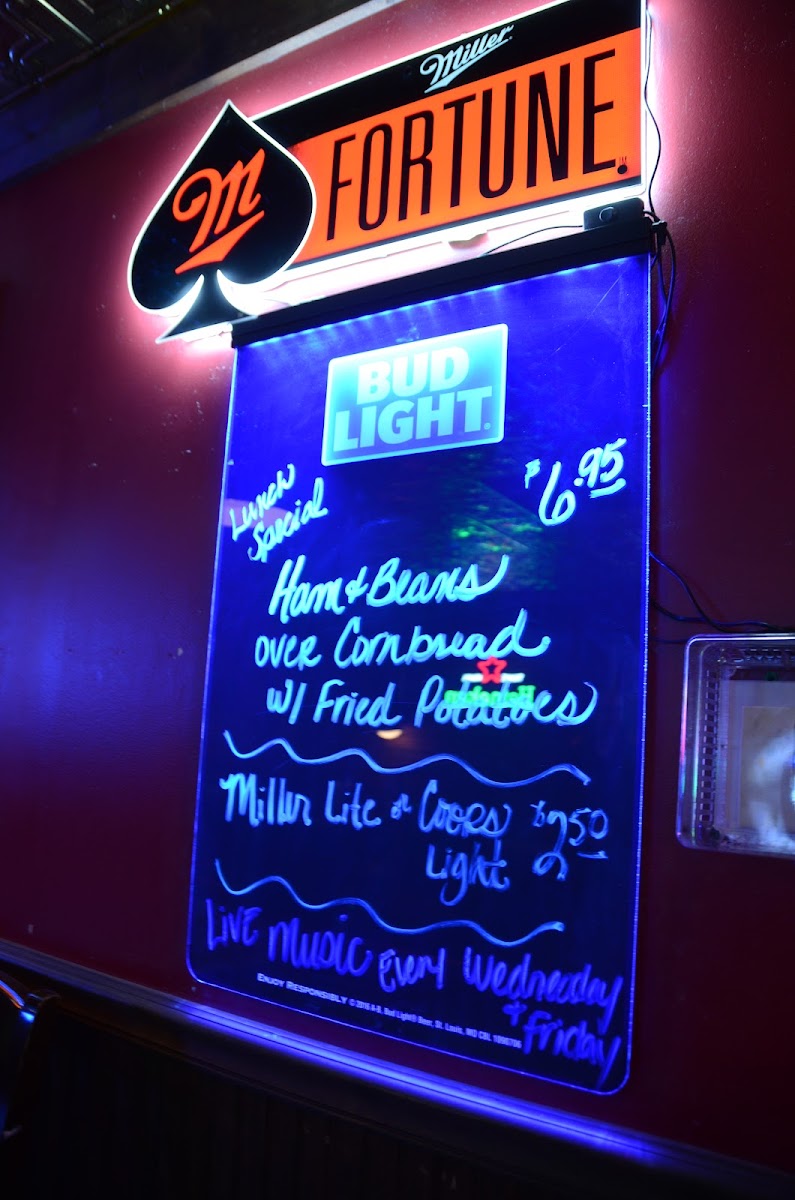 Miller
M FORTUNE.
TM
BUD
LIGHT®
Lunch
Special
$6.95
Ham & Beans
over Cornbread
w/ Fried Potatoes
Miller Lite or Coors $2.50
Light
Live Music Every Wednesday
+ Friday
ENJOY RESPONSIBLY © 2016 A-B, Bud Light® Beer, St. Louis, MO